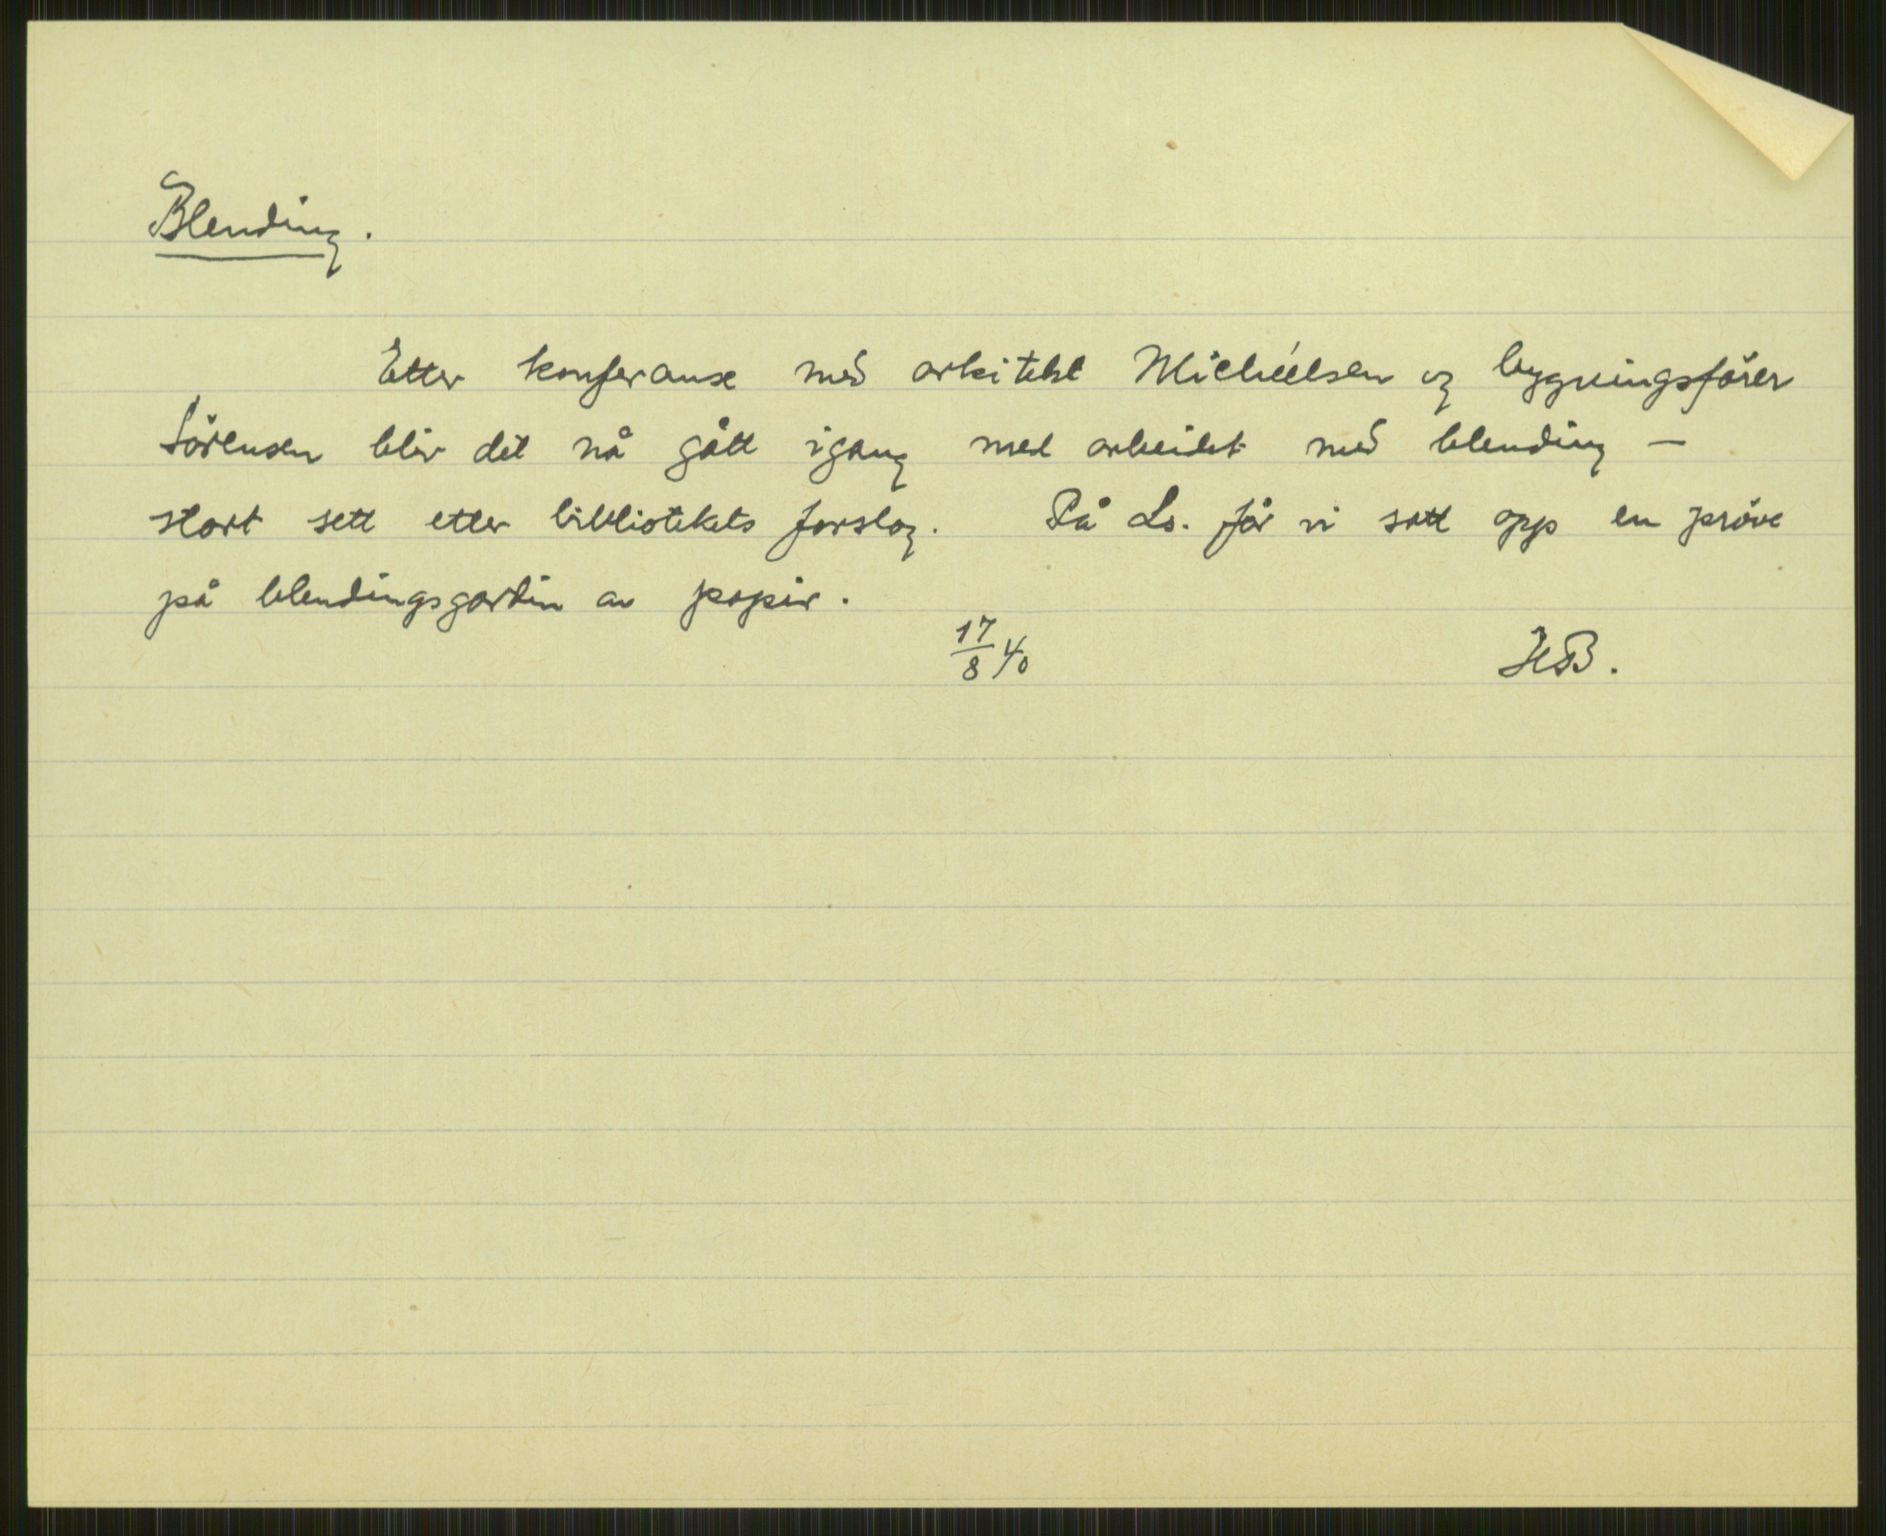 Blending.
Etter konferanse med arkitekt Michélsen og bygningsförer
Sörensen blir det nå gått igang med arbeidet med blending –
stort sett etter bibliotekets forslag. På Ls. får vi satt opp en pröve
på blendingsgardin av papir.
17/8 40 HB.